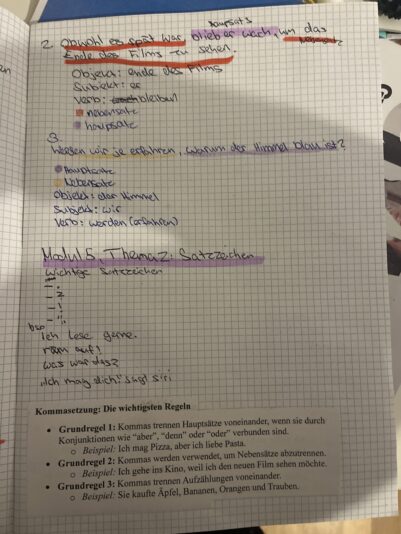 haupsats
2. Obwohl es spät war, blieb er wach, um das
Ende des Films zu sehen.
Objekt: ende des Films
Subjekt: er
Verb: bleiben
nebensatz
haupsatz
3.
Werden wir je erfahren, warum der Himmel blau ist?
Hauptsatz
Nebensatz
Objekt: der Himmel
Subjekt: wir
Verb: werden (erfahren)
Modul 5, Thema 2: Satzzeichen
Wichtige Satzzeichen
- .
- ?
- !
- „“
bsp
Ich Lese gerne.
räm auf!
was war das?
„Ich mag dich!" sagt siri
Kommasetzung: Die wichtigsten Regeln
• Grundregel 1: Kommas trennen Hauptsätze voneinander, wenn sie durch
Konjunktionen wie "aber", "denn" oder "oder" verbunden sind.
o Beispiel: Ich mag Pizza, aber ich liebe Pasta.
• Grundregel 2: Kommas werden verwendet, um Nebensätze abzutrennen.
o Beispiel: Ich gehe ins Kino, weil ich den neuen Film sehen möchte.
• Grundregel 3: Kommas trennen Aufzählungen voneinander.
o Beispiel: Sie kaufte Äpfel, Bananen, Orangen und Trauben.